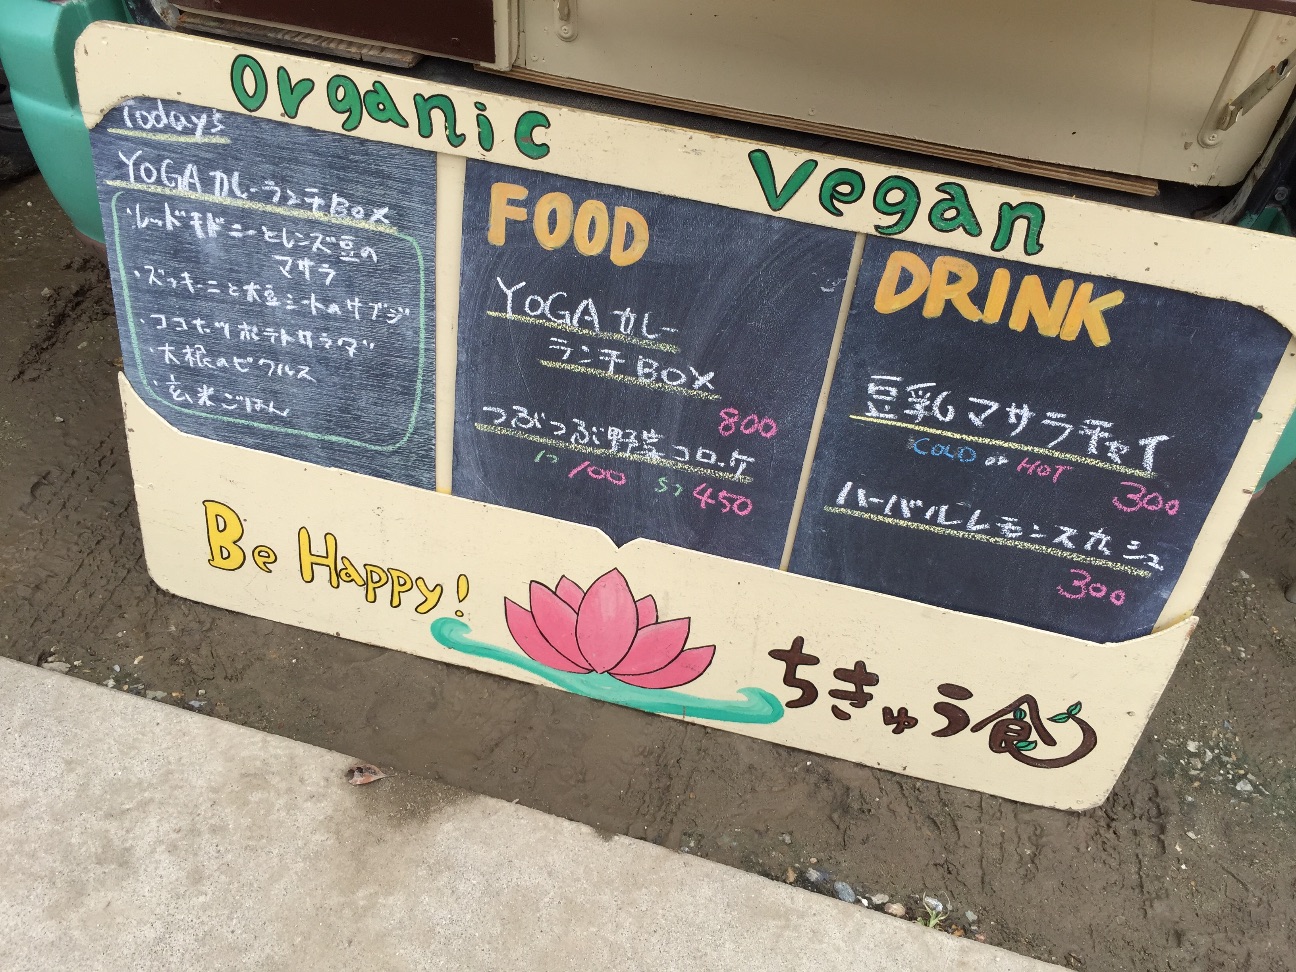 Organic Vegan
Today's
YOGA カレーランチBOX
・レッドキドニーとレンズ豆の
マサラ
・ズッキーニと大豆ミートのサブジ
・ココナツポテトサラダ
・大根のピクルス
・玄米ごはん
FOOD
YOGA カレー
ランチ BOX
800
つぶつぶ野菜コロッケ
1コ 100 5コ 450
DRINK
豆乳マサラチャイ
COLD or HOT
300
ハーバルレモンスカッシュ
300
Be Happy!
ちきゅう食